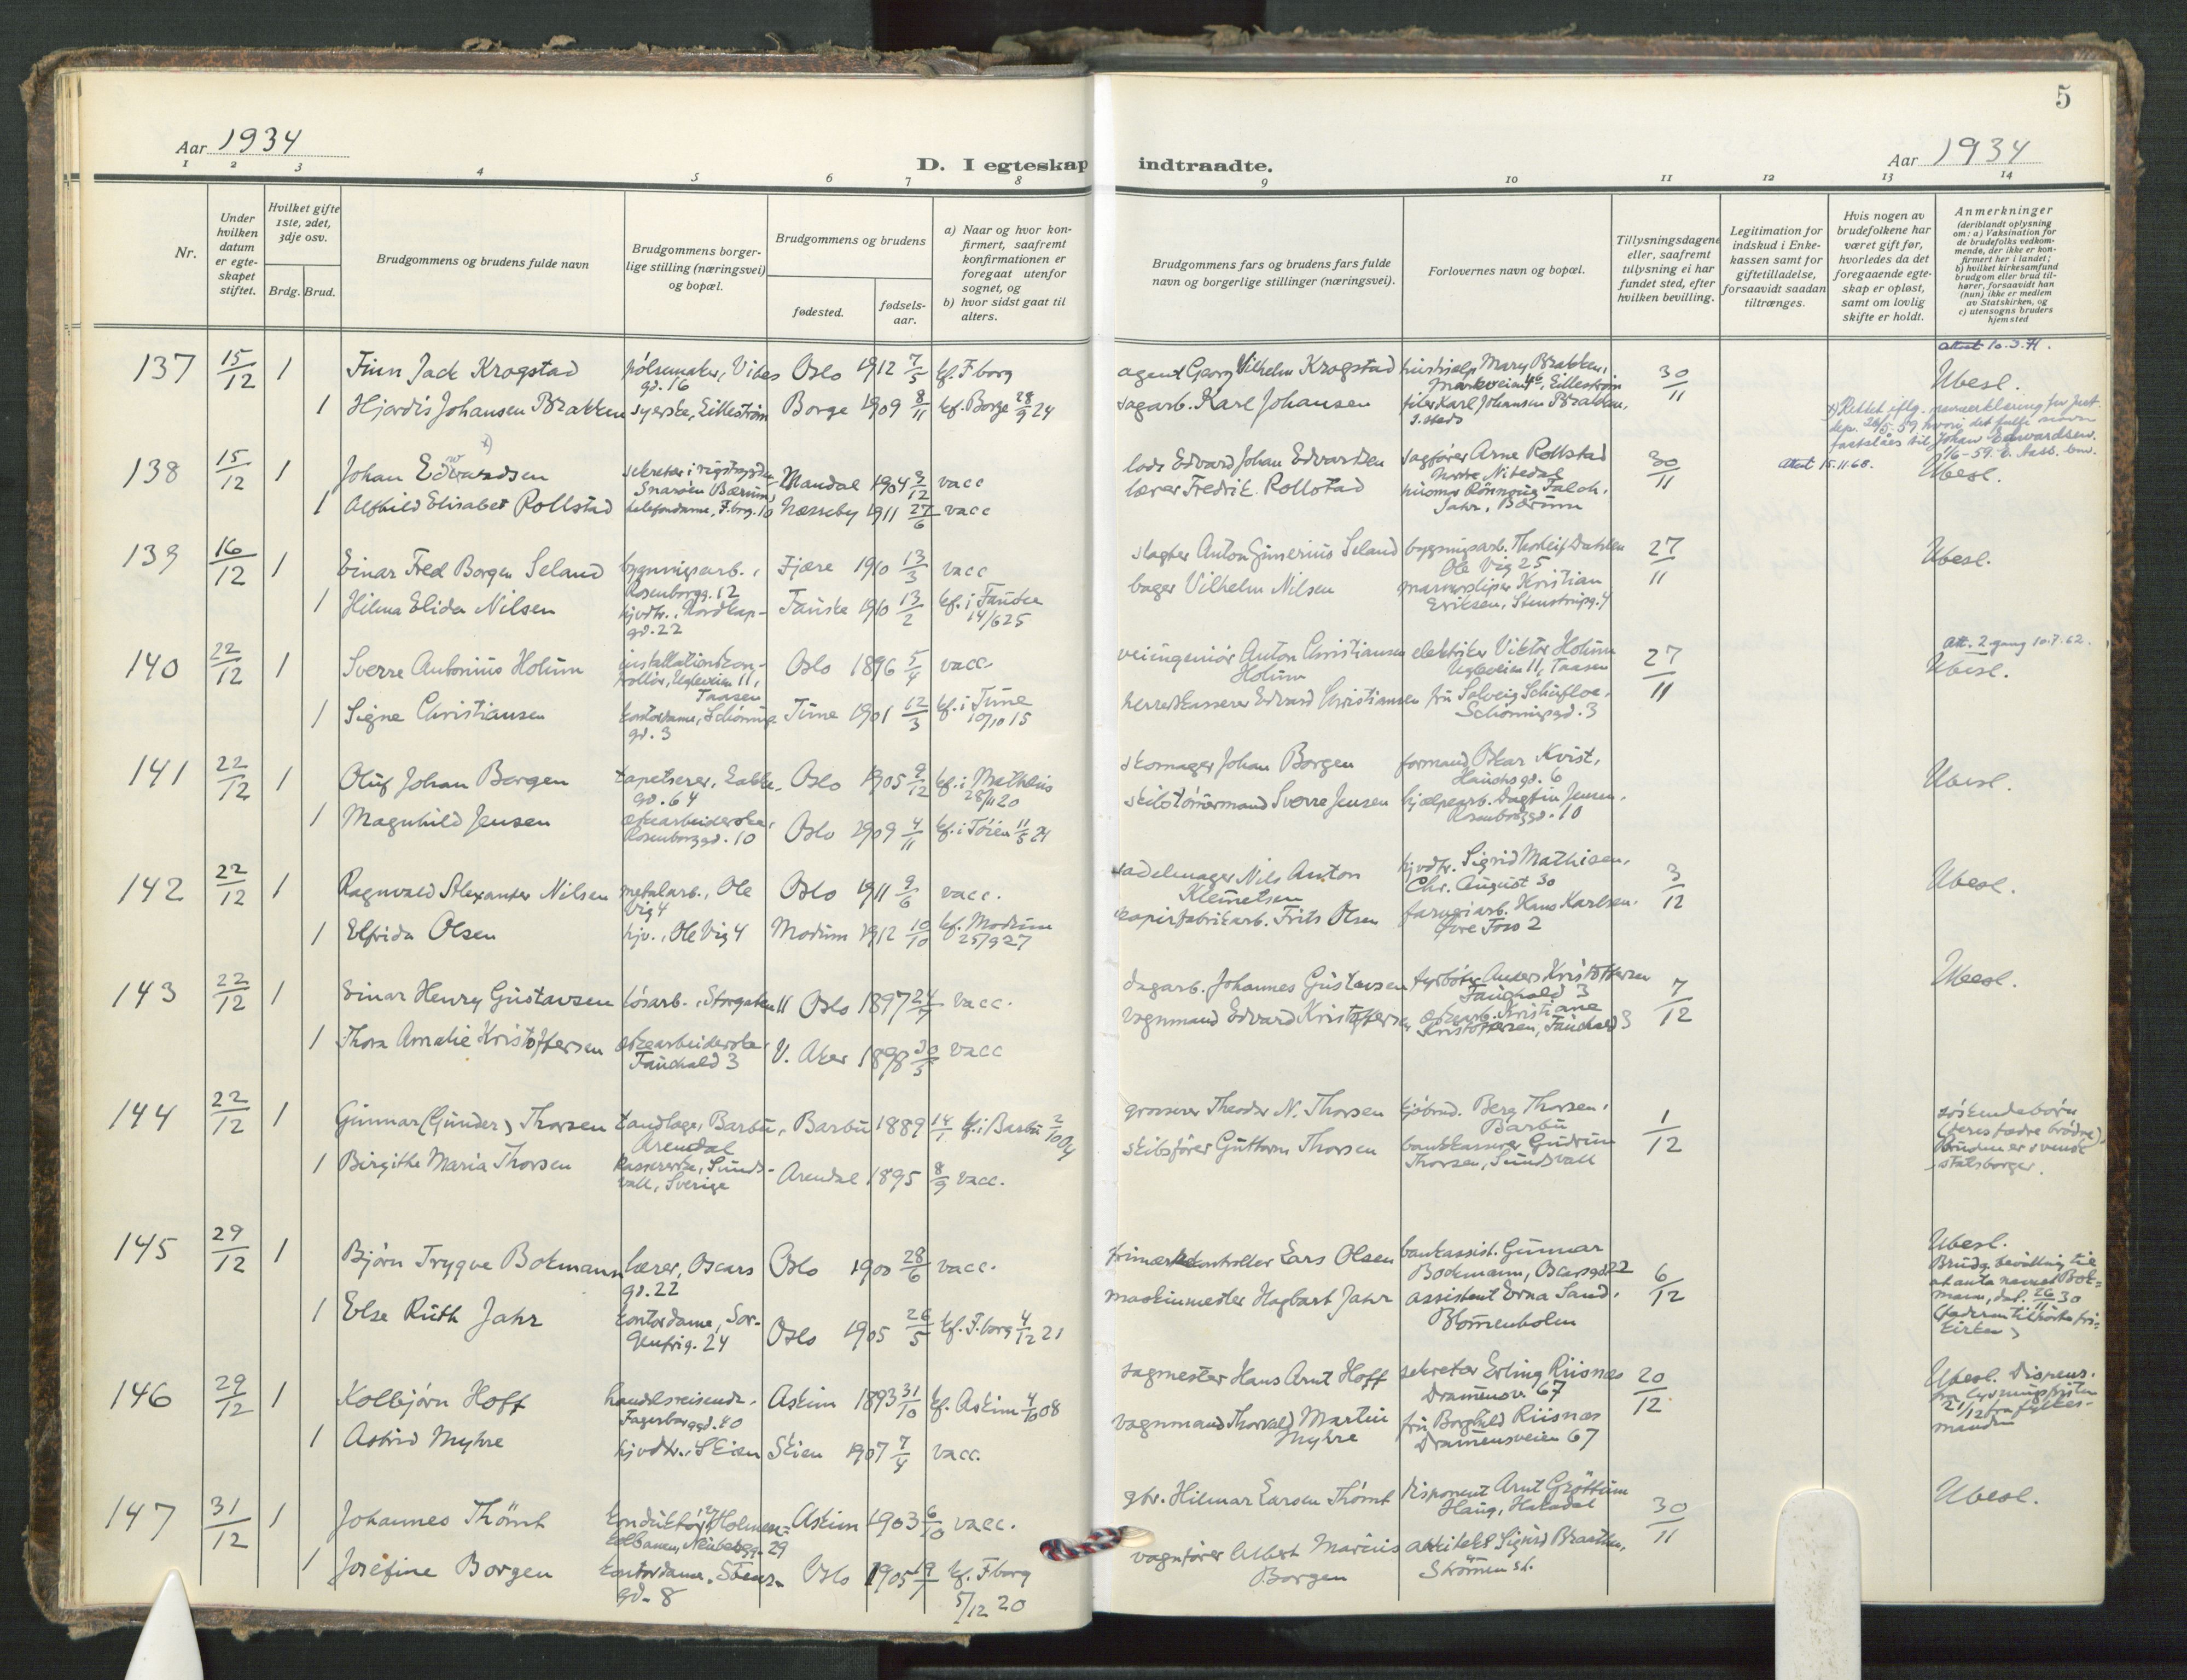 5
Aar 1934
D. I egteskap indtraadte.
Aar 1934
1 2 3 4 5 6 7 8 9 10 11 12 13 14
Nr.
Under hvilken datum er egte-skapet stiftet.
Hvilket gifte 1ste, 2det, 3dje osv.
Brdg. Brud.
Brudgommens og brudens fulde navn
Brudgommens borger-lige stilling (næringsvei) og bopæl.
Brudgommens og brudens
fødested.
fødsels-aar.
a) Naar og hvor kon-firmert, saafremt konfirmationen er foregaat utenfor sognet, og
b) hvor sidst gaat til alters.
Brudgommens fars og brudens fars fulde navn og borgerlige stillinger (næringsvei).
Forlovernes navn og bopæl.
Tillysningsdagene eller, saafremt tillysning ei har fundet sted, efter hvilken bevilling.
Legitimation for indskud i Enke-kassen samt for giftetilladelse, forsaavidt saadan tiltrænges.
Hvis nogen av brudefolkene har været gift før, hvorledes da det foregaaende egte-skap er opløst, samt om lovlig skifte er holdt.
Anmerkninger
(deriblandt oplysning om: a) Vaksination for de brudefolks vedkom-mende, der ikke er kon-firmert her i landet; b) hvilket kirkesamfund brudgom eller brud til-hører, forsaavidt han (hun) ikke er medlem av Statskirken, og c) utensogns bruders hjemsted
137 15/12 1 Finn Jack Krogstad pølsemaker, Vibes gd. 16 Oslo 1912 7/5 kf. F.borg agent Georg Vilhelm Krogstad hushjelp Mary Brakken, 30/11 Ubesl.
1 Hjørdis Johansen Brakken syerske, Lilleström Borge 1909 8/11 kf. Borge 28/9 24 sagarb. Karl Johansen filer Karl Johansen Brakken, s. steds
138 15/12 1 Johan Edwardsen Snarøen Bærum Mandal 1904 9/12 vacc lods Edvard Johan Edvardsen sagfører Arne Rollstad Nordre Nitedal 30/11 attest 15.11.68. Ubesl.
1 Alfhild Elisabet Rollstad telefondame, F.borg. 10 Næsseby 1911 27/6 vacc lærer Fredrik Rollstad Jahr, Bærum
139 16/12 1 Einar Fred Borgen Seland bygningsarb., Rosenborgg. 12 Fjære 1910 13/3 vacc slagter Anton Gunerius Seland bygningsarb. Thorleif Dahlen Ole Vig 25 27/11 Ubesl.
1 Hilma Elida Nilsen hjvdtr., Nordkap-gd. 22 Fauske 1910 13/2 kf. i Fauske 14/6 25 bager Vilhelm Nilsen marmorsliper Kristian Eriksen, Stenstrupg. 4
140 22/12 1 Sverre Antonius Holum installationskon-trollør, Ugleveien 11, Taasen Oslo 1896 5/4 vacc. veiingeniør Anton Christiansen Holum elektriker Viktor Holum Ugleveien 11, Taasen 27/11 Att. 2 gang 10.7.62. Ubesl.
1 Signe Christiansen kontordame, Schönings gd. 3 Time 1901 12/3 kf. i Time 10/10 15 herredkasserer Edvard Christiansen fru Solveig Schiefloe, Schönningsgd. 3
141 22/12 1 Oluf Johan Borgen tapetserer, Lakke-gd. 64 Oslo 1905 9/12 kf. i Mathæus 28/11 20 skomager Johan Borgen formand Oskar Kvist, Hausmsgd. 6 Ubesl.
1 Magnhild Jensen æskearbeiderske, Rosenborggd. 10 Oslo 1909 4/11 kf. i Tøien 11/5 24 skibstömmermand Sverre Jensen hjelpearb. Dagfin Jensen, Rosenborggd. 10
142 22/12 1 Ragnvald Alexander Nilsen metalarb., Ole Vig 4 Oslo 1911 9/6 vacc. sadelmager Nils Anton Klemetsen hjvdtr. Sigrid Mathisen, Chr. August 30 3/12 Ubesl.
1 Elfrida Olsen hjv., Ole Vig 4 Modum 1912 10/10 kf. Modum 25/9 27 papirfabrikarb. Frits Olsen farveriarb. Hans Karlsen, Øvre Foss 2
143 22/12 1 Einar Henry Gustavsen løsarb., Storgaten 11 Oslo 1897 vacc. dagarb. Johannes Gustavsen fyrbøter Anders Kristoffersen Fauchald 3 7/12 Ubesl.
1 Thora Amalie Kristoffersen æskearbeiderske, Fauchald 3 V. Aker 1898 vacc vognmand Edvard Kristoffersen æskearb. Kristiane Kristoffersen, Fauchald 3
144 22/12 1 Gunnar (Gunder) Thorsen tandlæge, Barbu, Arendal Barbu 1889 14/1 kf. i Barbu 2/10 04 grosserer Theodor N. Thorsen kjöbmd. Berg Thorsen, Barbu 1/12 söskendebørn (deres fædre brødre) Bruden er svensk statsborger.
1 Birgithe Maria Thorsen kassererske, Sunds-vall, Sverige Arendal 1895 8/9 vacc. skibsfører Guttorm Thorsen bankkasserer Gudrun Thorsen, Sundsvall
145 29/12 1 Bjørn Trygve Bokmann lærer, Oscars gd. 22 Oslo 1900 28/6 vacc. frimærkekontrollør Lars Olsen bankassist. Gunnar Bockmann, Oscarsgd. 22 6/12 Ubesl. Brudg. bevilling til at anta navnet Bok-mann, dat. 26/11 30 (faderen tilhørte fri-kirken)
1 Else Ruth Jahr kontordame, Sor-genfrig. 24 Oslo 1905 26/5 kf. F.borg 4/12 21 maskinmester Hagbart Jahr assistent Erna Sand, Blommenholm
146 29/12 1 Kolbjørn Hoff handelsreisende, Fagerborggd. 40 Askim 1893 31/10 kf. Askim 4/10 08 sagmester Hans Arnt Hoff sekretær Erling Riisnæs Drammensv. 67 20/12 Ubesl. Dispens. fra lysningsfristen 21/12 fra fylkes-manden
1 Astrid Myhre hjvdtr., Skien Skien 1907 7/4 vacc. vognmand Thorvald Martin Myhre fru Borghild Riisnæs Drammensveien 67
147 31/12 1 Johannes Thömt konduktør v/Holmen-kolbanen, Neubergg. 29 Askim 1903 6/10 vacc. gbr. Hilmar Larsen Thömt disponent Arnt Gröttum Haug, Hakadal 30/11 Ubesl.
1 Josefine Borgen kontordame, Stens-gd. 8 Oslo 1905 kf. F.borg 5/12 20 vognfører Albert Marius Borgen arkitekt Sigurd Braathen, Strömmen st.